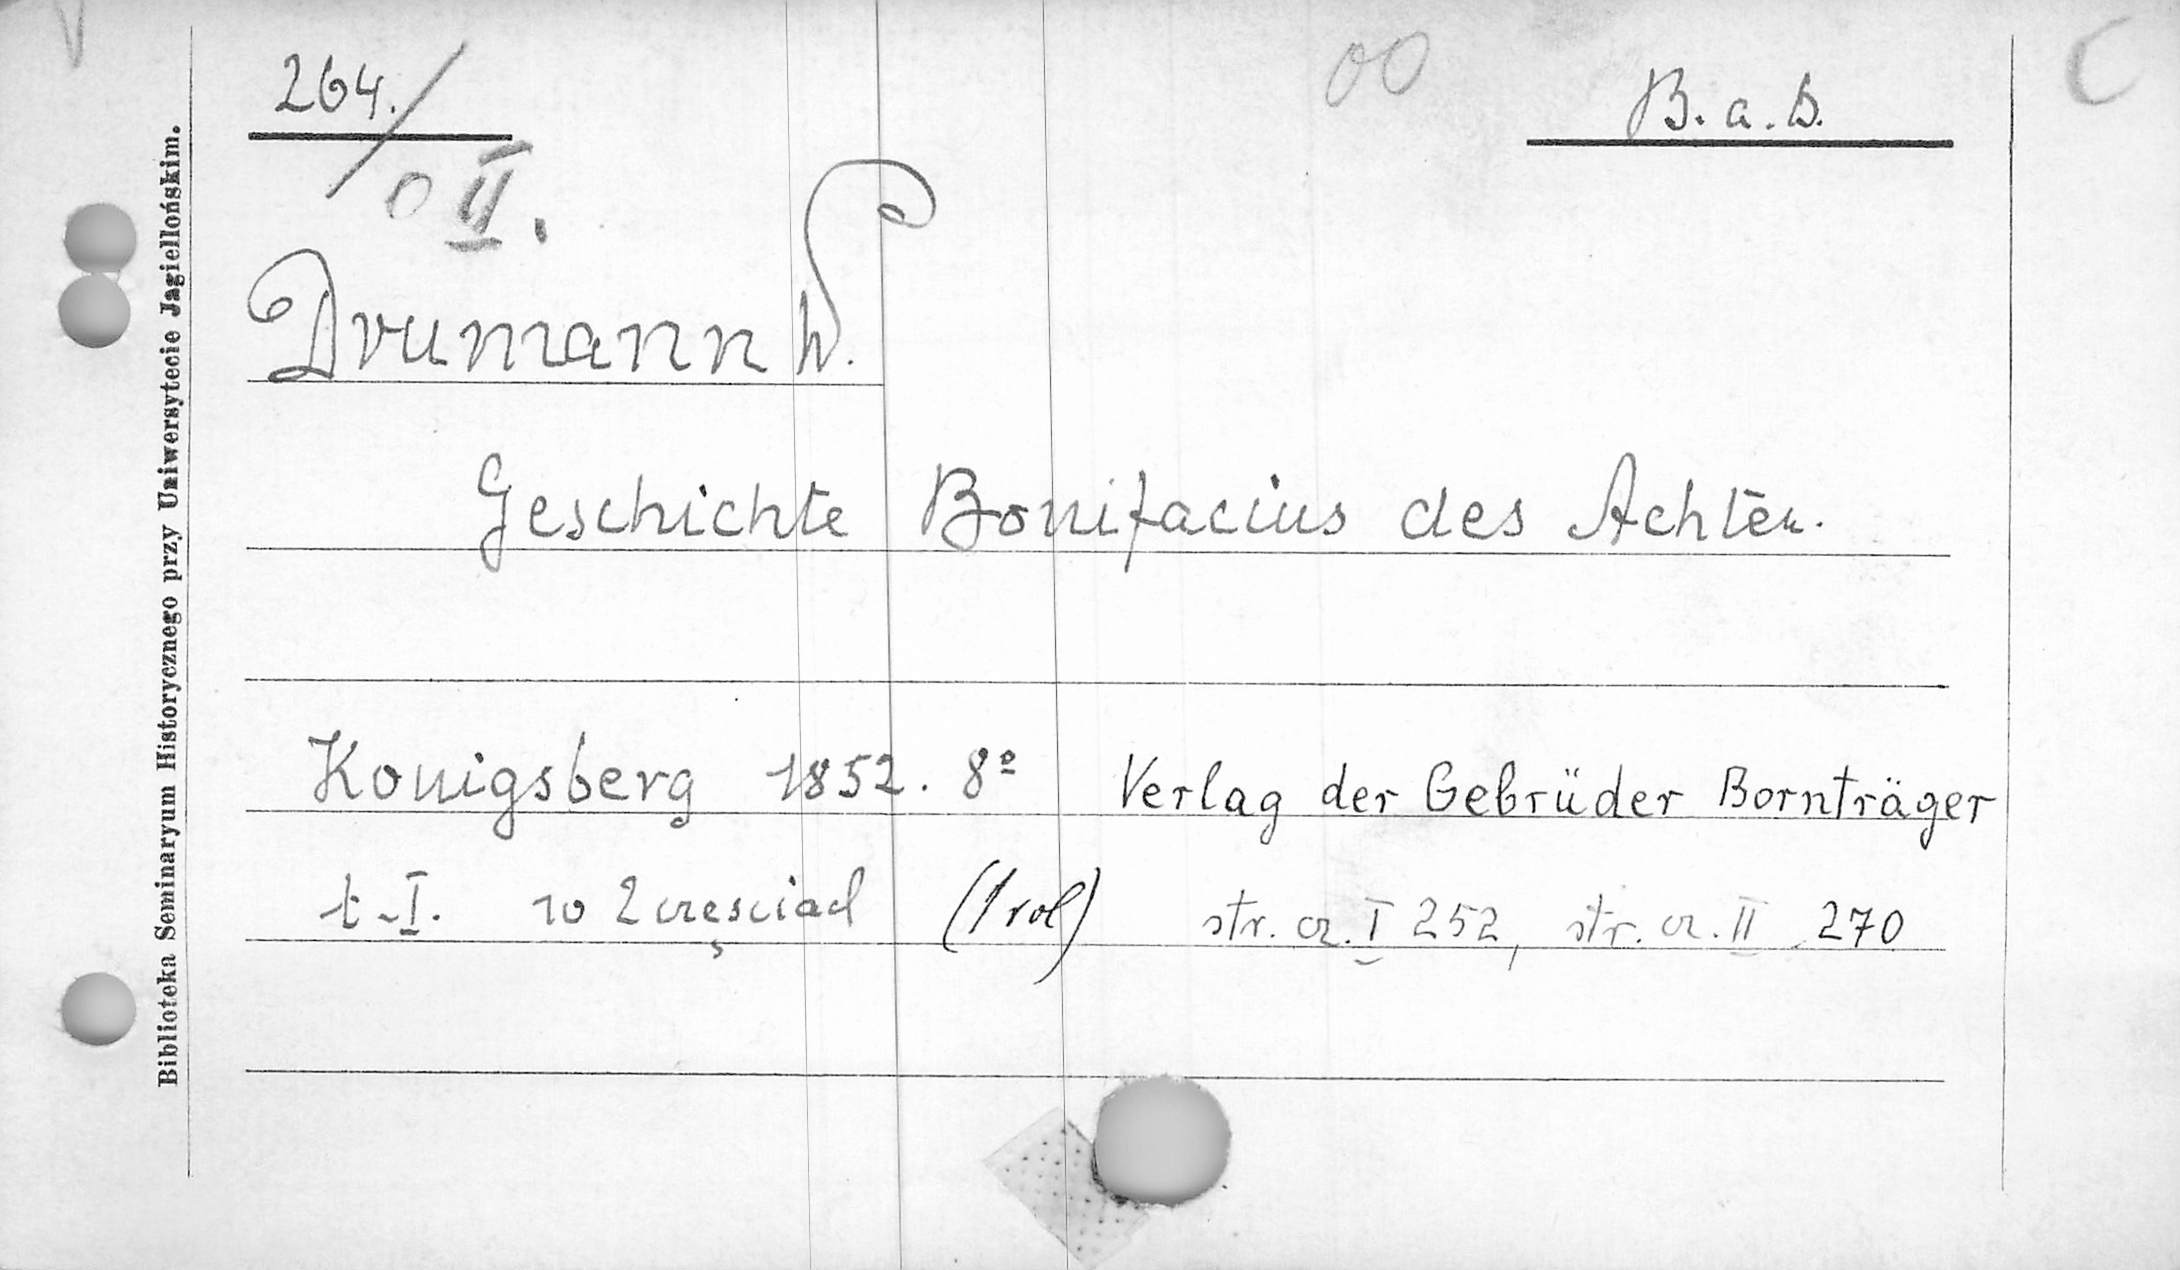 264.
00
B. a. b.
C
0 II.
Drumann W.
Geschichte Bonifacius des Achten.
Konigsberg 1852. 8º Verlag der Gebrüder Bornträger
t. I. w 2 częściach (1 vol) str. cz. I 252, str. cz. II 270
Biblioteka Seminaryum Historycznego przy Uniwersytecie Jagiellońskim.